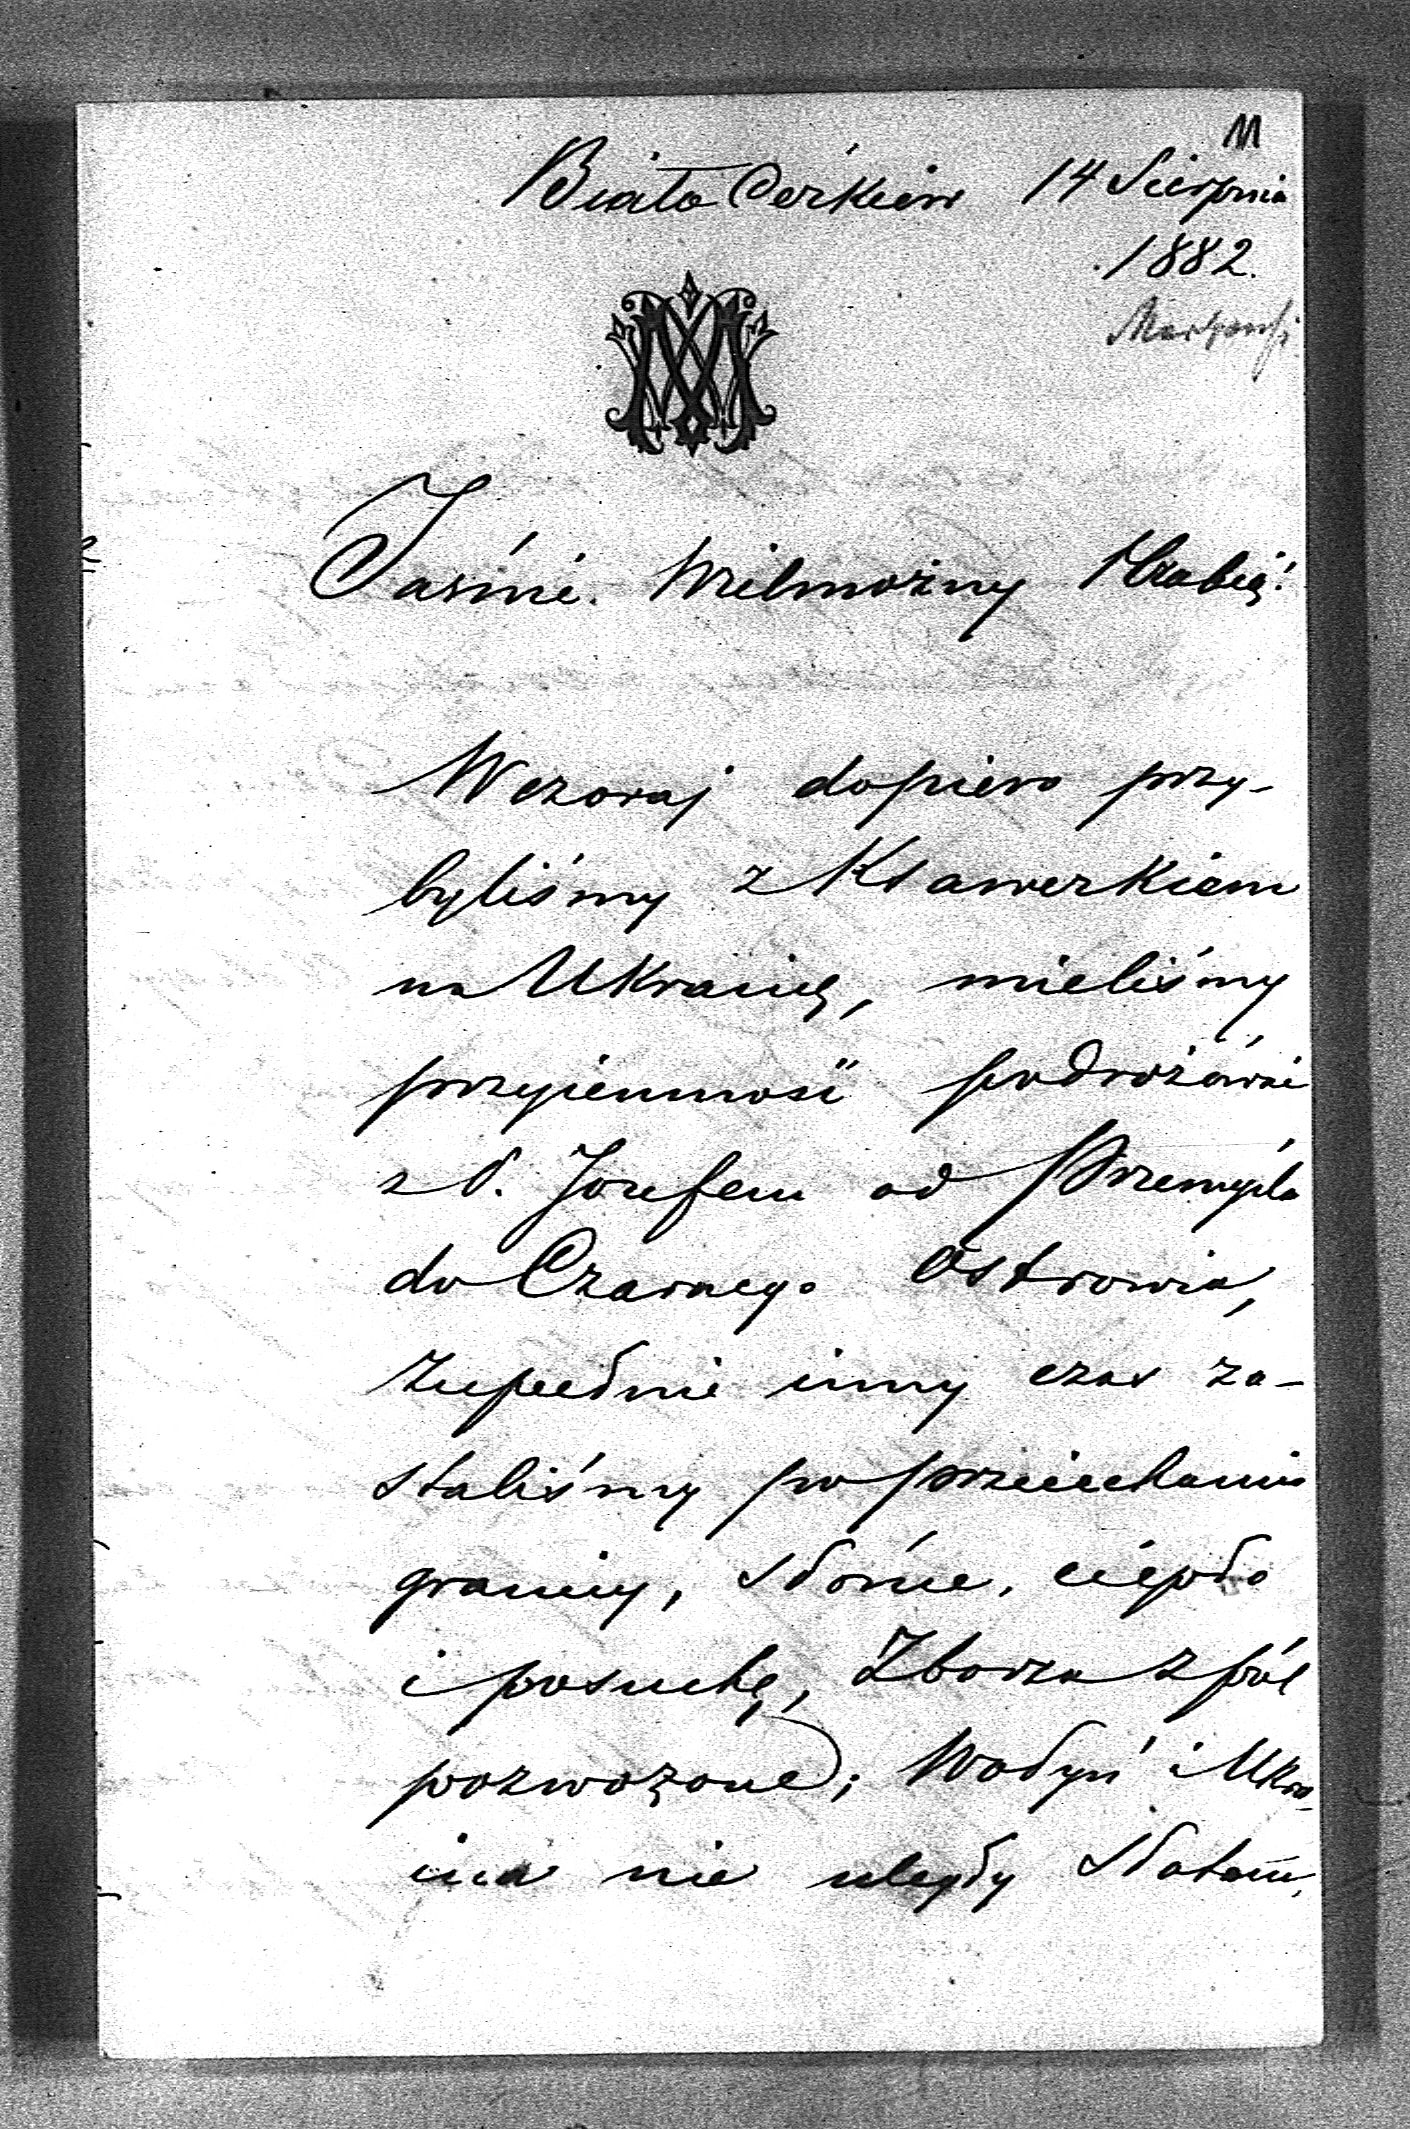 11
Biała Cerkiew 14 Sierpnia
1882.
Jaśnie Wielmożny Hrabię!
Wczoraj dopiero przy-
byliśmy z Ksawerkiem
na Ukrainę, mieliśmy
przyiemność podróżować
z P. Jozefem od Przemyśla
do Czarnego Ostrowia,
zupełnie inny czas za-
staliśmy po przeiechaniu
granicy, słońce, ciepło
i posuchę, Zborza z pól
pozwożone; Wołyń i Ukra-
ina nie uległy słotom,